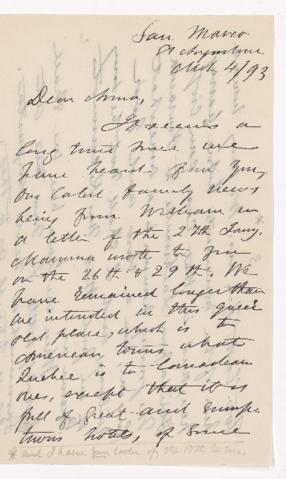 San Marco
St Augustine
Mch 4/93
Dear Anna,
It seems a
long time since we
have heard from you,
our latest family news
being from William in
a letter of the 27th Jany.*
Mamma wrote to you
on the 26th & 29th. We
have remained longer than
we intended in this queer
old place, which is to
American towns what
Quebec is to Canadian
ones, except that it is
full of great and sump-
tuous hotels, of some
* and I have your letter of the 17th to me.